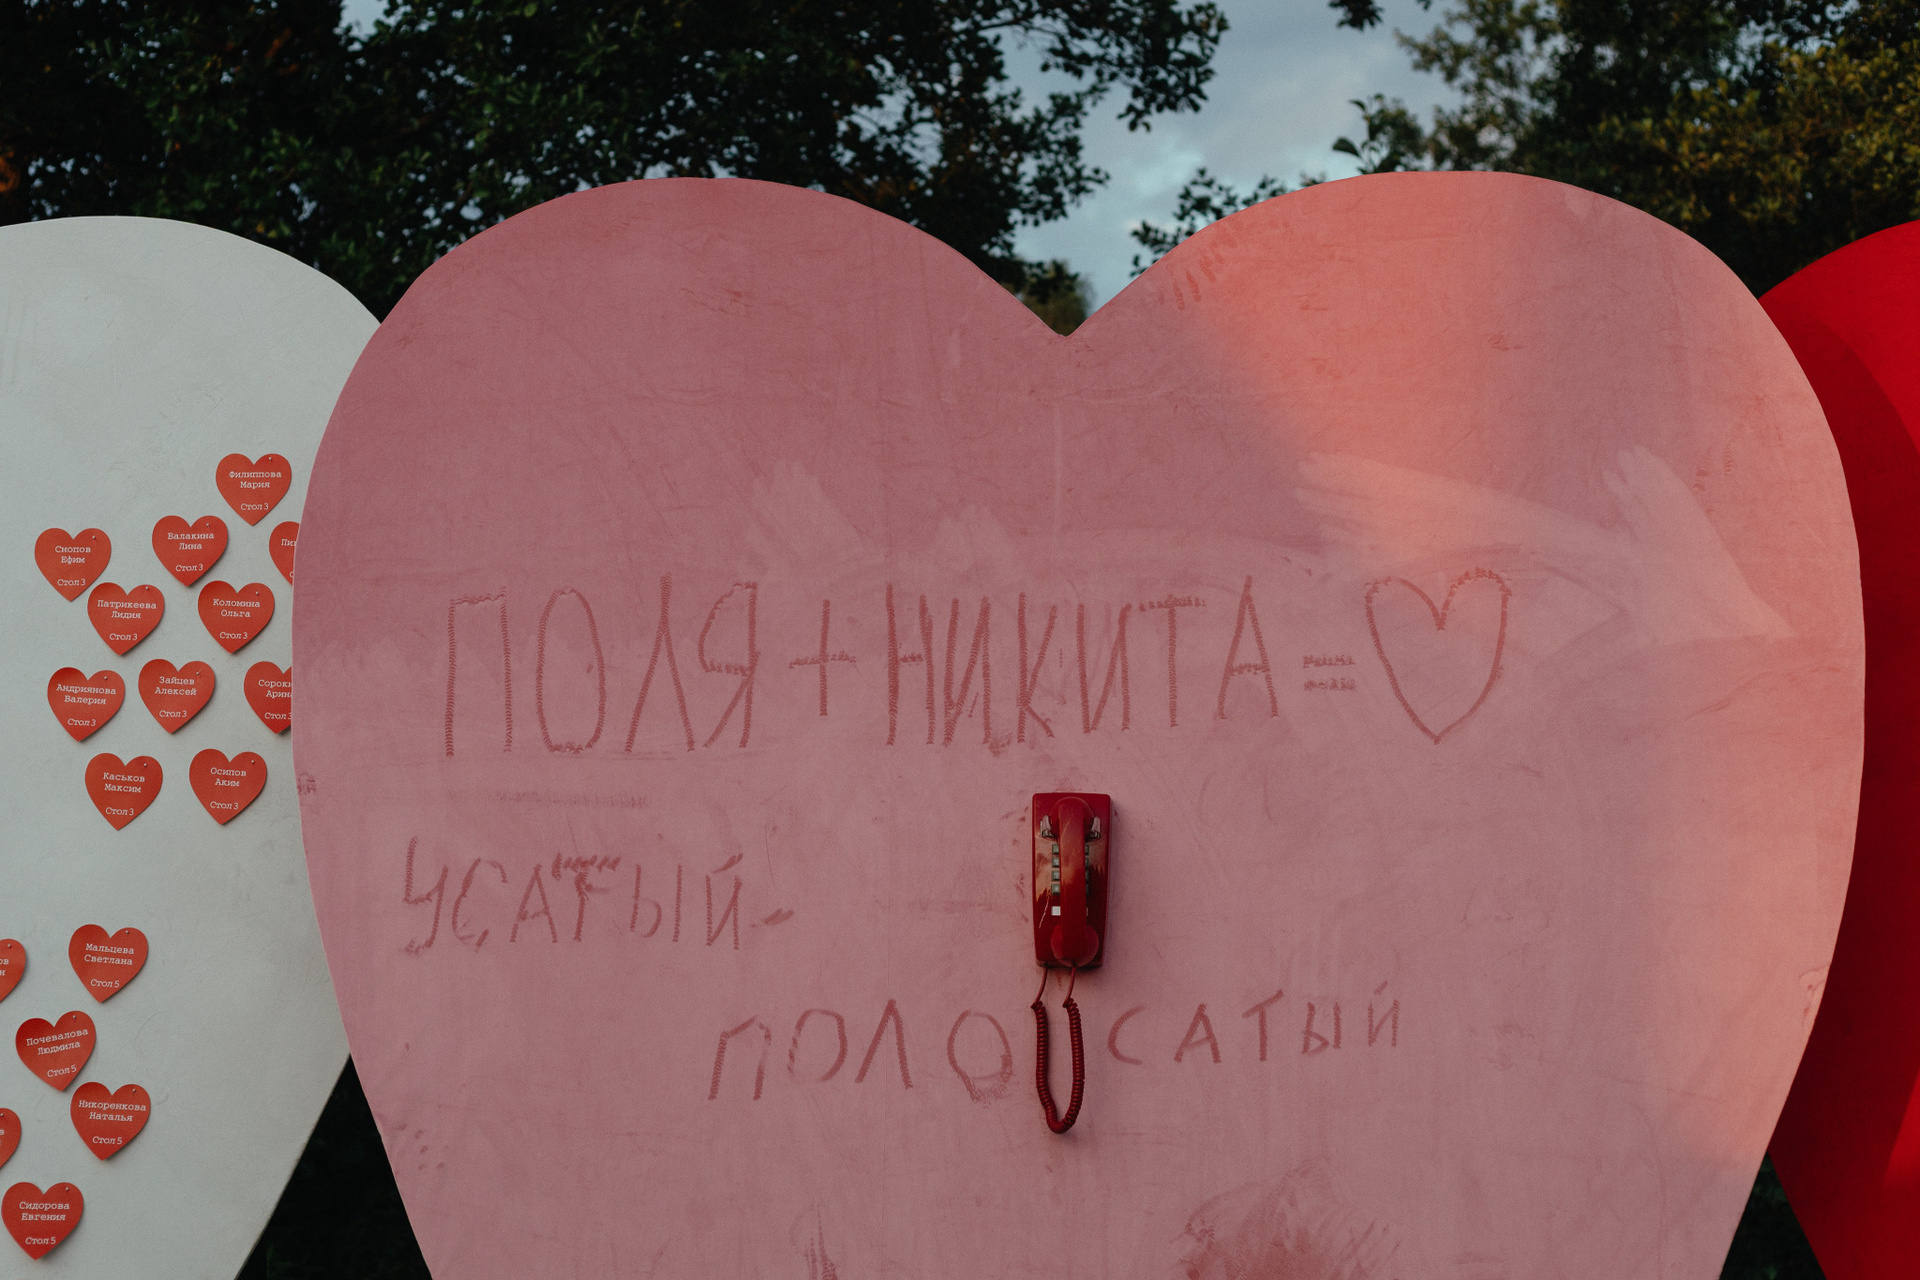 ПОЛЯ+НИКИТА=
УСАТЫЙ-
ПОЛОСАТЫЙ
Филиппова
Мария
Стол 3
Снопов
Ефим
Стол 3
Валакина
Лина
Стол 3
Патрикеева
Лидия
Стол 3
Коломина
Ольга
Стол 3
Андриянова
Валерия
Стол 3
Зайцев
Алексей
Стол 3
Стол 3
Каськов
Максим
Стол 3
Осипов
Аким
Стол 3
Мальцева
Светлана
Стол 5
Почевалова
Людмила
Стол 5
Никоренкова
Наталья
Стол 5
Сидорова
Евгения
Стол 5